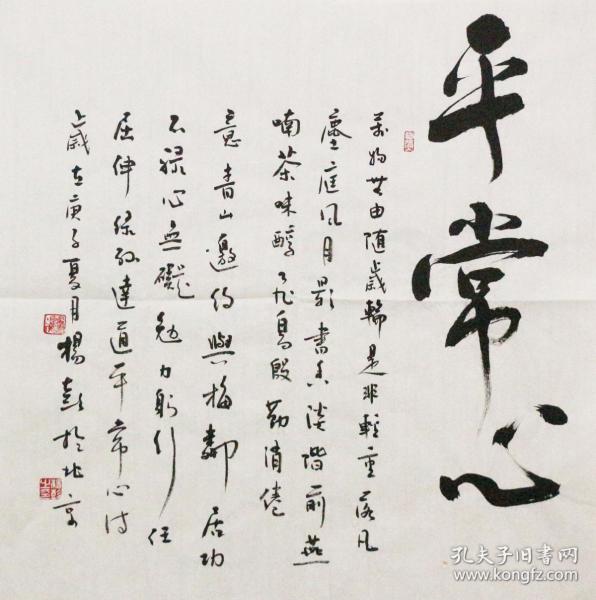 平常心
万物无由随岁轮是非轻重落凡
尘庭风月影书香淡阶前燕
喃茶味醇飞鸟殷勤消倦
意青山邀约与梅邻居功
不禄心无碍勉力躬行任
屈伸 达道平常心诗
岁在庚子夏月杨彭于北京
孔夫子旧书网
www.kongfz.com